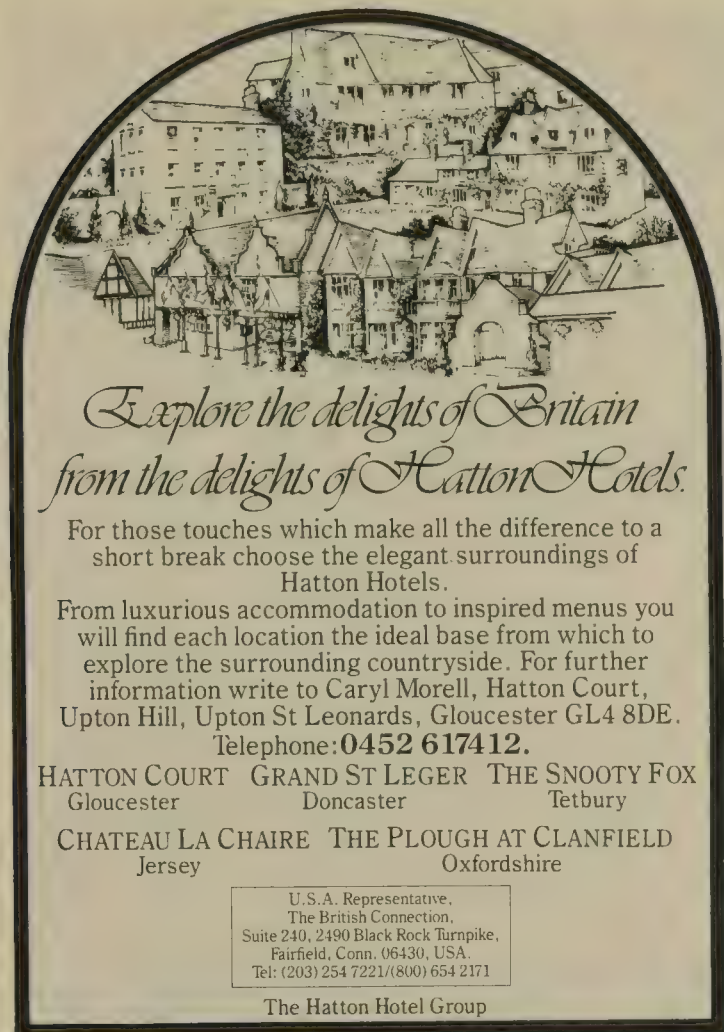 Explore the delights of Britain
from the delights of Hatton Hotels.
For those touches which make all the difference to a
short break choose the elegant surroundings of
Hatton Hotels.
From luxurious accommodation to inspired menus you
will find each location the ideal base from which to
explore the surrounding countryside. For further
information write to Caryl Morell, Hatton Court,
Upton Hill, Upton St Leonards, Gloucester GL4 8DE.
Telephone: 0452 617412.
HATTON COURT GRAND ST LEGER THE SNOOTY FOX
Gloucester Doncaster Tetbury
CHATEAU LA CHAIRE THE PLOUGH AT CLANFIELD
Jersey Oxfordshire
U.S.A. Representative,
The British Connection,
Suite 240, 2490 Black Rock Turnpike,
Fairfield, Conn. 06430, USA.
Tel: (203) 254 7221/(800) 654 2171
The Hatton Hotel Group